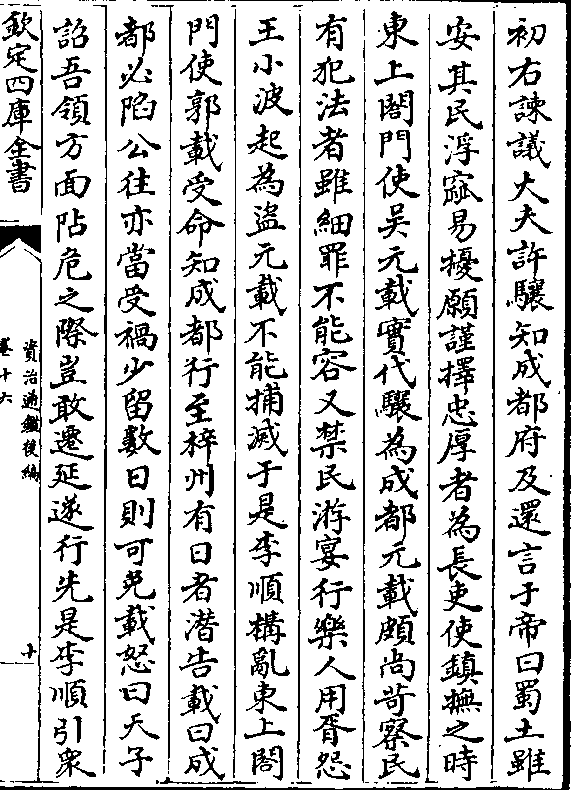 初右諫議大夫許驤知成都府及還言于帝曰蜀土雖
安其民浮窳易擾願謹擇忠厚者為長吏使鎮撫之時
東上閤門使吳元載實代驤為成都元載頗尚苛察民
有犯法者雖細罪不能容又禁民游宴行樂人用胥怨
王小波起為盜元載不能捕滅于是李順構亂東上閤
門使郭載受命知成都行至梓州有日者潛告載曰成
都必陷公往亦當受禍少留數日則可免載怒曰天子
詔吾領方面阽危之際豈敢遷延遂行先是李順引衆
欽定四庫全書
資治通鑑後編
卷十六
十